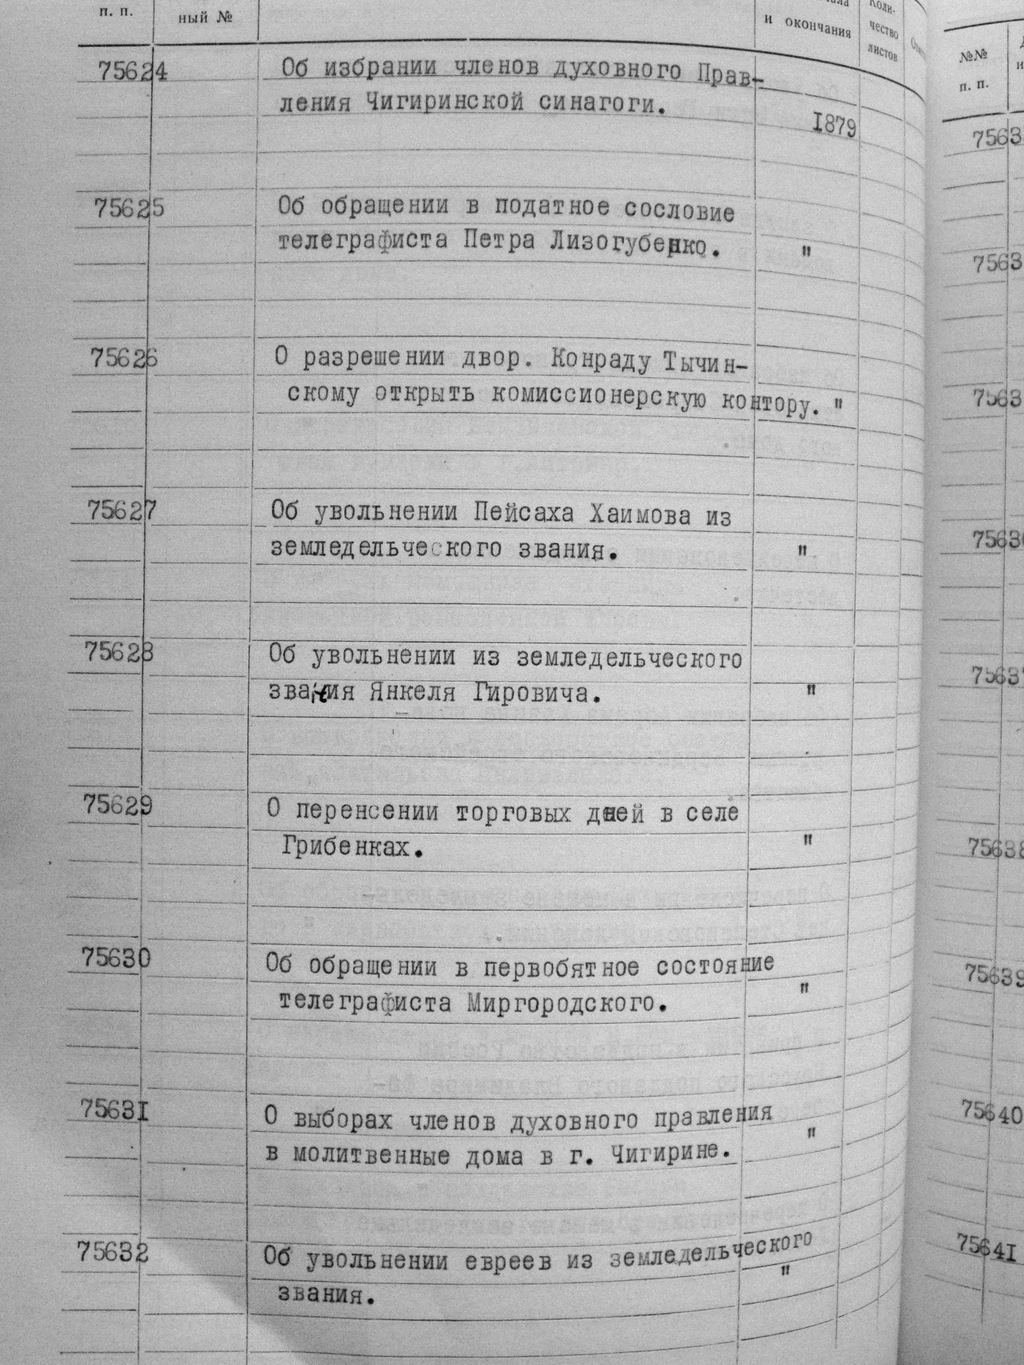 п. п. ный № и окончания Коли-
чество
листов
75624 Об избрании членов духовного Прав-
ления Чигиринской синагоги. 1879
75625 Об обращении в податное сословие
телеграфиста Петра Лизогубенко. "
75626 О разрешении двор. Конраду Тычин-
скому открыть комиссионерскую контору. "
75627 Об увольнении Пейсаха Хаимова из
земледельческого звания. "
75628 Об увольнении из земледельческого
звания Янкеля Гировича. "
75629 О перенсении торговых дней в селе
Грибенках. "
75630 Об обращении в первобятное состояние
телеграфиста Миргородского. "
75631 О выборах членов духовного правления
в молитвенные дома в г. Чигирине. "
75632 Об увольнении евреев из земледельческого
звания. "
№№
п. п.
7563
7563
7563
7563
7563
75638
75639
75640
75641